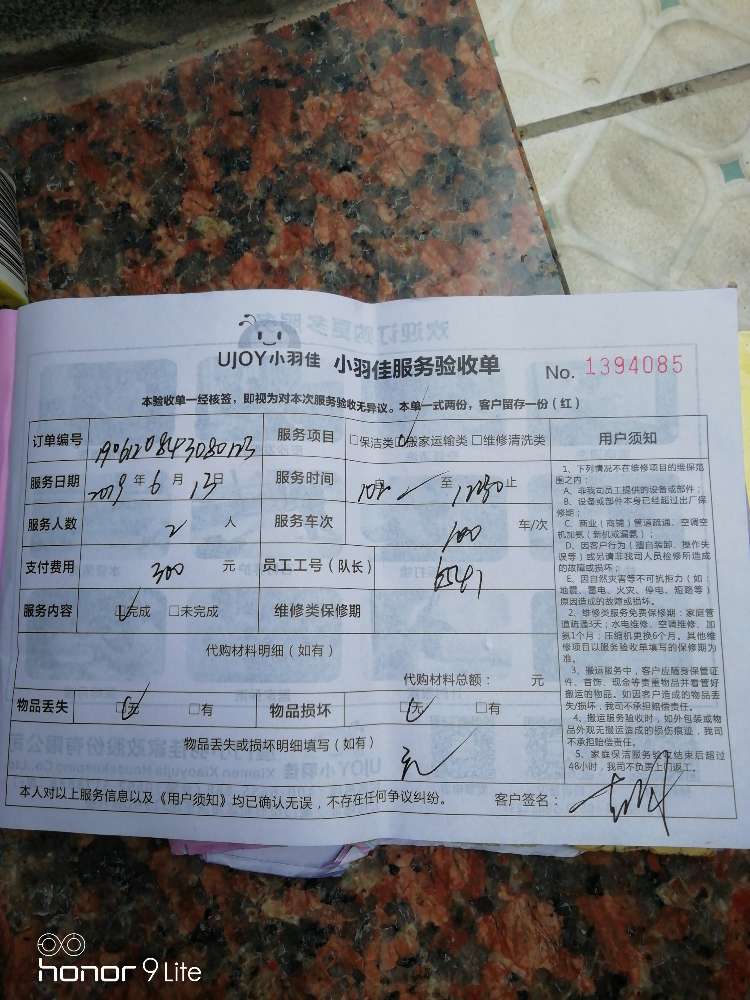 UJOY小羽佳 小羽佳服务验收单 No. 1394085
本验收单一经核签，即视为对本次服务验收无异议。本单一式两份，客户留存一份（红）
订单编号 190612084308023 服务项目 □保洁类 □搬家运输类 □维修清洗类
服务日期 2019年6月13日 服务时间 至 止
服务人数 2 人 服务车次 100 车/次
支付费用 300 元 员工工号（队长）
服务内容 □完成 □未完成 维修类保修期
代购材料明细（如有）
代购材料总额： 元
物品丢失 □无 □有 物品损坏 □无 □有
物品丢失或损坏明细填写（如有）
无
本人对以上服务信息以及《用户须知》均已确认无误，不存在任何争议纠纷。 客户签名：
用户须知
1、下列情况不在维修项目的维保范
围之内：
A、非我司员工提供的设备或部件；
B、设备或部件本身已经超过出厂保
修期；
C、商业（商铺）管道疏通、空调空
机加氨（新机或漏氨）；
D、因客户行为（擅自装卸、操作失
误等）或另请非我司人员检修所造成
的故障或损坏；
E、因自然灾害等不可抗拒力（如：
地震、雷电、火灾、停电、短路等）
原因造成的故障或损坏。
2、维修类服务免费保修期：家庭管
道疏通3天；水电维修、空调维修、加
氨1个月；压缩机更换6个月。其他维
修项目以服务验收单填写的保修期为
准。
3、搬运服务中，客户应随身保管证
件、首饰、现金等贵重物品并看管好
搬运的物品。如因客户造成的物品丢
失/损坏，我司不承担赔偿责任。
4、搬运服务验收时，如外包装或物
品外观无搬运造成的损伤痕迹，我司
不承担赔偿责任。
5、家庭保洁服务验收结束后超过
48小时，我司不负责上门返工。
honor 9 Lite